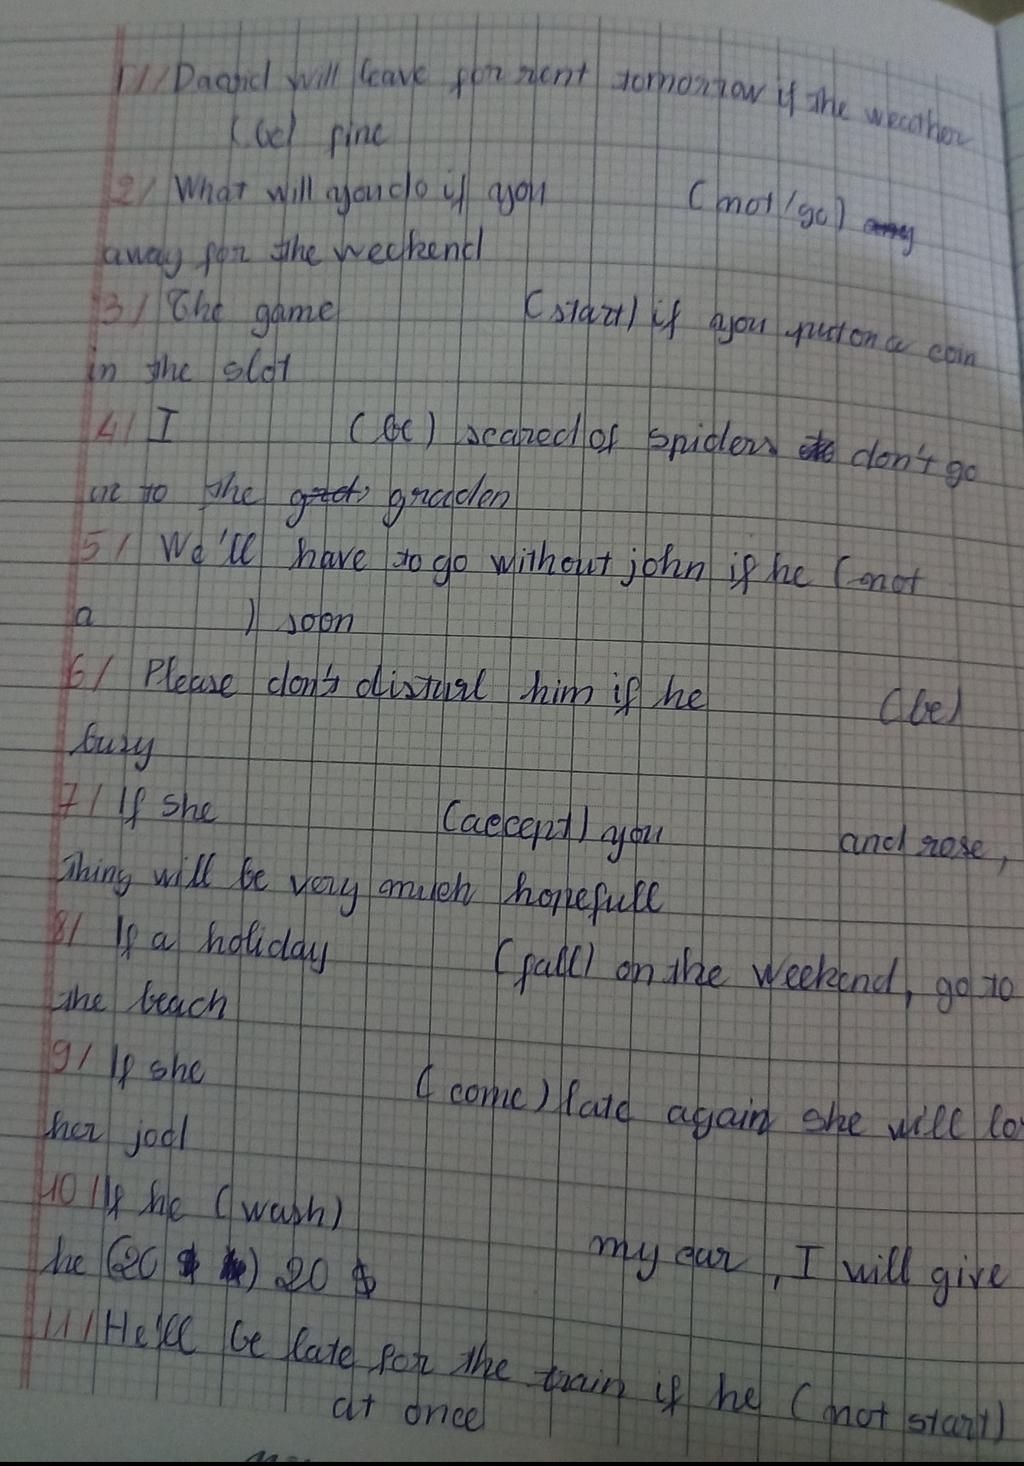 1// David will leave for rent tomorrow if the weather
(be) fine
2/ What will you do if you (not/go)
away for the weekend
3/ The game (start) if you put on a coin
in the slot
4/ I (be) scared of spiders don't go
to the graden
5/ We'll have to go without john if he (not
a ) soon
6/ Please don't disturl him if he (be)
buzy
7/ If she (aecept) you and rose,
Thing will be very much hopefull
8/ If a holiday (fall) on the weekend, go to
the beach
9/ If she (come) late again she will lo
her jod
10/ If he (wash)
my car, I will give
he (20 $ ) 20 $
11/ He'll be late for the train if he (not start)
at once